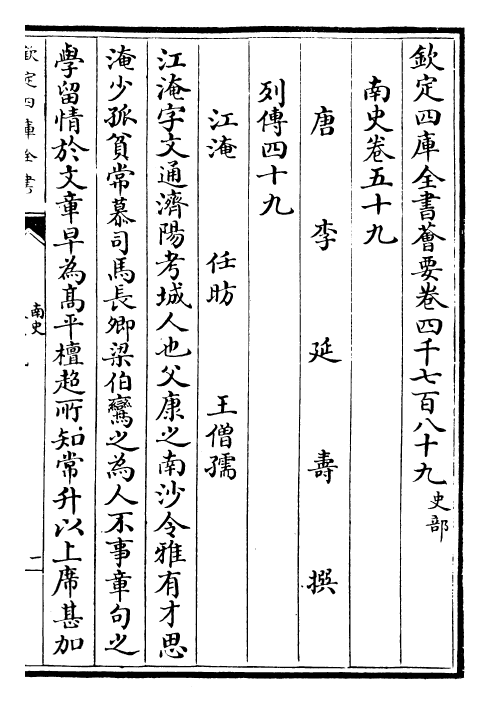 欽定四庫全書薈要卷四千七百八十九史部
南史卷五十九
唐李延壽撰
列傳四十九
江淹 任昉 王僧孺
江淹字文通濟陽考城人也父康之南沙令雅有才思
淹少孤貧常慕司馬長卿梁伯鸞之為人不事章句之
學留情於文章早為髙平檀超所知常升以上席甚加
欽定四庫全書
南史